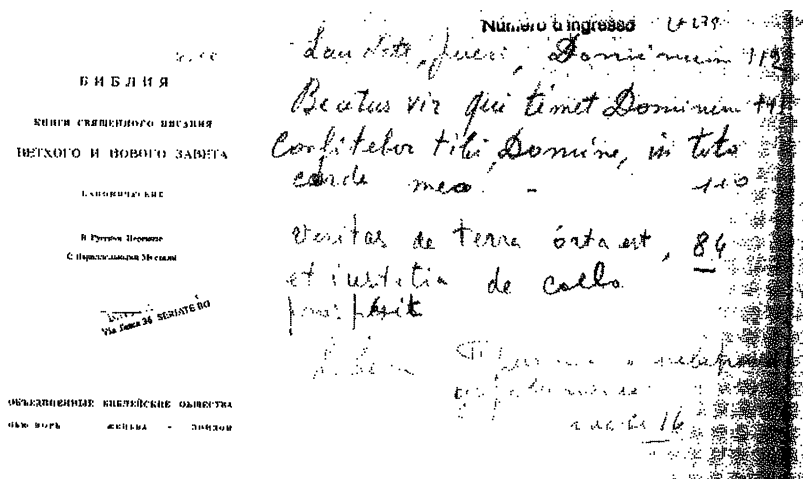 БИБЛИЯ
КНИГИ СВЯЩЕННОГО ПИСАНИЯ
ВЕТХОГО И НОВОГО ЗАВЕТА
КАНОНИЧЕСКИЕ
В Русском Переводе
С Параллельными Местами
Via Tasca 36 SERIATE BG
ОБЪЕДИНЕННЫЕ БИБЛЕЙСКИЕ ОБЩЕСТВА
НЬЮ ЙОРК ЖЕНЕВА - ЛОНДОН
Numero d'ingresso
Laudate, pueri, Dominum 112
Beatus vir qui timet Dominum 111
Confitebor tibi, Domine, in toto
corde meo. - 110
Veritas de terra orta est, 84
et iustitia de coelo
prospexit
16